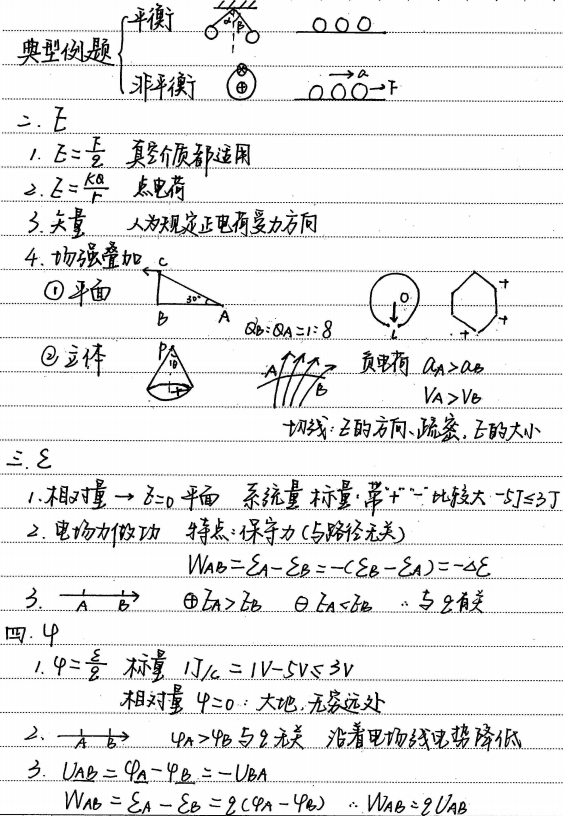 典型例题
平衡
α β
非平衡
a
F
二. E
1. E=F/q 真空介质都适用
2. E=KQ/r 点电荷
3. 矢量 人为规定正电荷受力方向
4. 场强叠加
① 平面 C B A 30° QB:QA=1:8 O L + + +
② 立体 P A B 负电荷 aA>aB
VA>VB
切线:E的方向、疏密,E的大小
三. ε
1. 相对量→ε=0 平面 系统量 标量,带"+""-"比较大 -5J≤3J
2. 电场力做功 特点:保守力(与路径无关)
WAB=εA-εB=-(εB-εA)=-Δε
3. A B ⊕EA>EB ⊖EA<EB ∴与q有关
四. φ
1. φ=ε/q 标量 1J/C=1V -5V≤3V
相对量 φ=0:大地,无穷远处
2. A B φA>φB与q无关 沿着电场线电势降低
3. UAB=φA-φB=-UBA
WAB=εA-εB=q(φA-φB) ∴WAB=qUAB